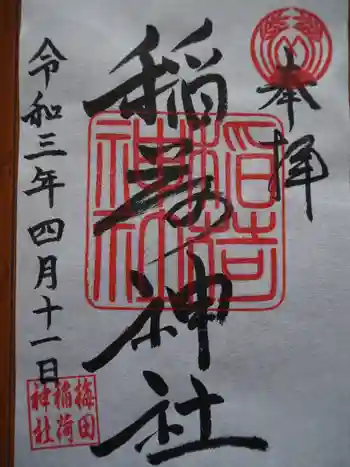 奉拝
稲荷神社
令和三年四月十一日
梅田
稲荷
神社